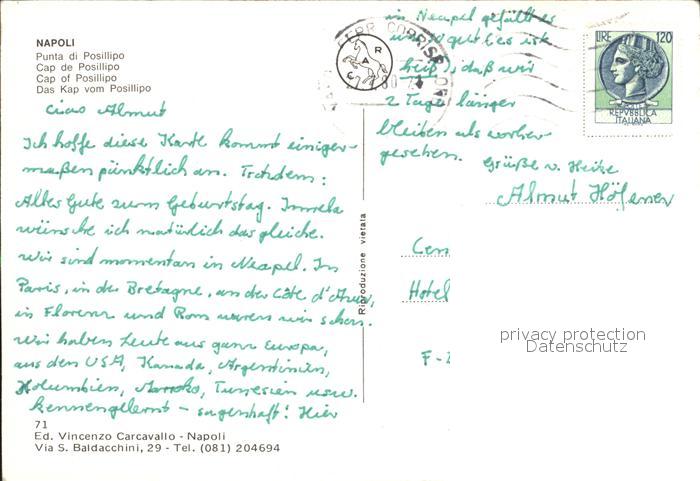 NAPOLI
Punta di Posillipo
Cap de Posillipo
Cap of Posillipo
Das Kap vom Posillipo
Ciao Almut
Ich hoffe diese Karte kommt einiger-
maßen pünktlich an. Trotzdem:
Alles Gute zum Geburtstag.
wünsche ich natürlich das gleiche.
Wir sind momentan in Neapel. In
Paris, in der Bretagne, an der Côte d'Azur,
in Florenz und Rom waren wir schon.
Wir haben Leute aus ganz Europa,
aus den USA, Kanada, Argentinien,
Kolumbien, Marokko, Tunesien usw.
kennengelernt – sagenhaft! Hier
in Neapel gefällt es
uns so gut (es ist
heiß), daß wir
2 Tage länger
bleiben als vorher
gesehen.
Grüße v. Heike
Almut
Cen
Hotel
F-
71
Ed. Vincenzo Carcavallo - Napoli
Via S. Baldacchini, 29 - Tel. (081) 204694
Riproduzione vietata
LIRE 120
REPVBBLICA
ITALIANA
privacy protection
Datenschutz